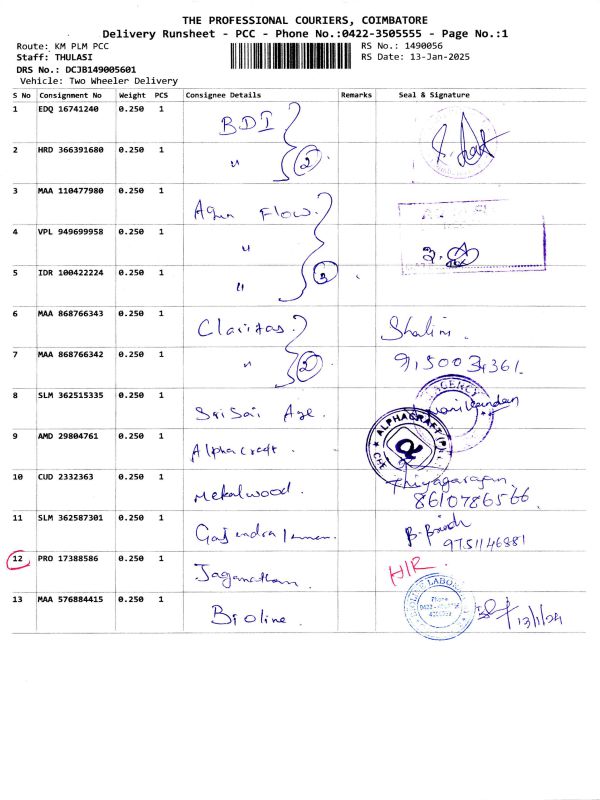 THE PROFESSIONAL COURIERS, COIMBATORE
Delivery Runsheet - PCC - Phone No.:0422-3505555 - Page No.:1
Route: KM PLM PCC RS No.: 1490056
Staff: THULASI RS Date: 13-Jan-2025
DRS No.: DCJB149005601
Vehicle: Two Wheeler Delivery
S No Consignment No Weight PCS Consignee Details Remarks Seal & Signature
1 EDQ 16741240 0.250 1 BDI
2 HRD 366391680 0.250 1 " 2
3 MAA 110477980 0.250 1 Aqua Flow
4 VPL 949699958 0.250 1 "
5 IDR 100422224 0.250 1 " 3
6 MAA 868766343 0.250 1 Claritas Shalini
7 MAA 868766342 0.250 1 " 2 9150034361
8 SLM 362515335 0.250 1 Sri Sai Age. AGENCY
9 AMD 29804761 0.250 1 Alphacraft ALPHACRAFT (P)
10 CUD 2332363 0.250 1 Mekalwood. Thiyagarajan 8610786566
11 SLM 362587301 0.250 1 Gajendra 9751146881
12 PRO 17388586 0.250 1 Jaganatham. HIR
13 MAA 576884415 0.250 1 Bioline. Phone 13/1/24